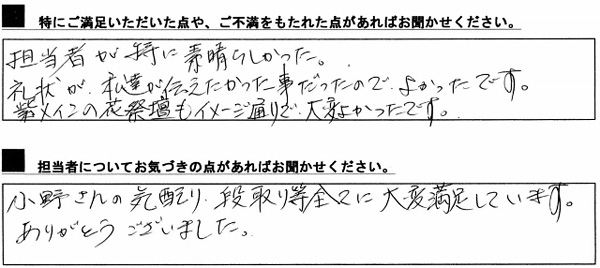 ■ 特にご満足いただいた点や、ご不満をもたれた点があればお聞かせください。
担当者が特に素晴らしかった。
礼状が、私達が伝えたかった事だったので、よかったです。
紫メインの花祭壇もイメージ通りで、大変よかったです。
■ 担当者についてお気づきの点があればお聞かせください。
小野さんの気配り、段取り等全てに大変満足しています。
ありがとうございました。